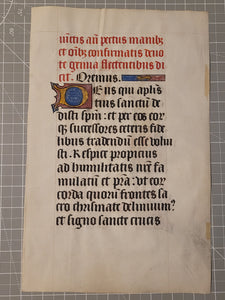 iũctis añ pectus manibꝫ
et oĩbꝫ confirmatis deuo
te genua flectentibus di
cit. Oremus.
Deus qui apłis
tuis sanctũ de
disti spm̃: et per eos eor
qꝫ successores ceteris fide
libus tradendũ esse volui
sti. Respice propicius
ad humilitatis nrẽ fa
mulatũ et pr̃a: vt eor
corda quorũ frontes sa
cro chrismate delinimꝰ
et signo sancte crucis